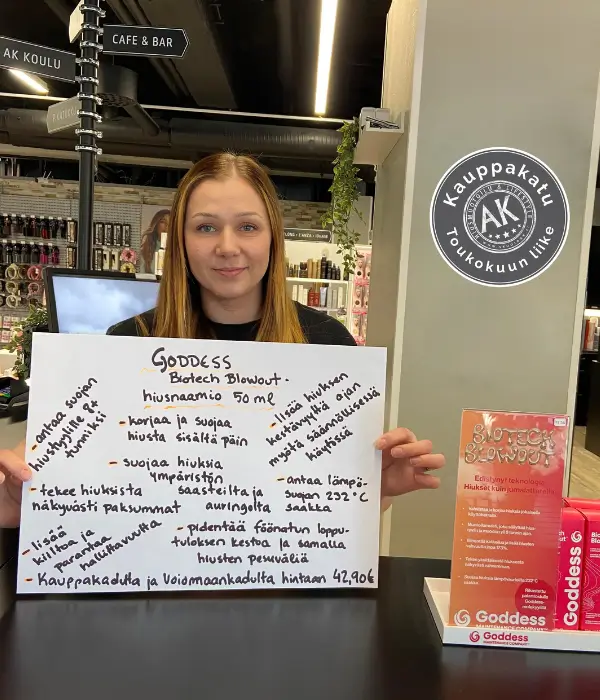 CAFE & BAR
AK KOULU
Kauppakatu
AK
Toukokuun liike
GODDESS
Biotech Blowout-
hiusnaamio 50 ml
- antaa suojan
hiustyylille 8+
tunniksi
- korjaa ja suojaa
hiusta sisältä päin
- lisää hiuksen
kestävyyttä ajan
myötä säännöllisessä
käytössä
- suojaa hiuksia
ympäristön
saasteilta ja
auringolta
- tekee hiuksista
näkyvästi paksummat
- antaa lämpö-
suojan 232°C
saakka
- lisää
kiiltoa ja
parantaa
hallittavuutta
- pidentää föönatun loppu-
tuloksen kestoa ja samalla
hiusten pesuväliä
- Kauppakadulta ja Voiomaankadulta hintaan 42,90€
BIOTECH
BLOWOUT
Edistynyt teknologia:
Hiukset kuin
Goddess
MAINTENANCE COMPANY
Goddess
Goddess